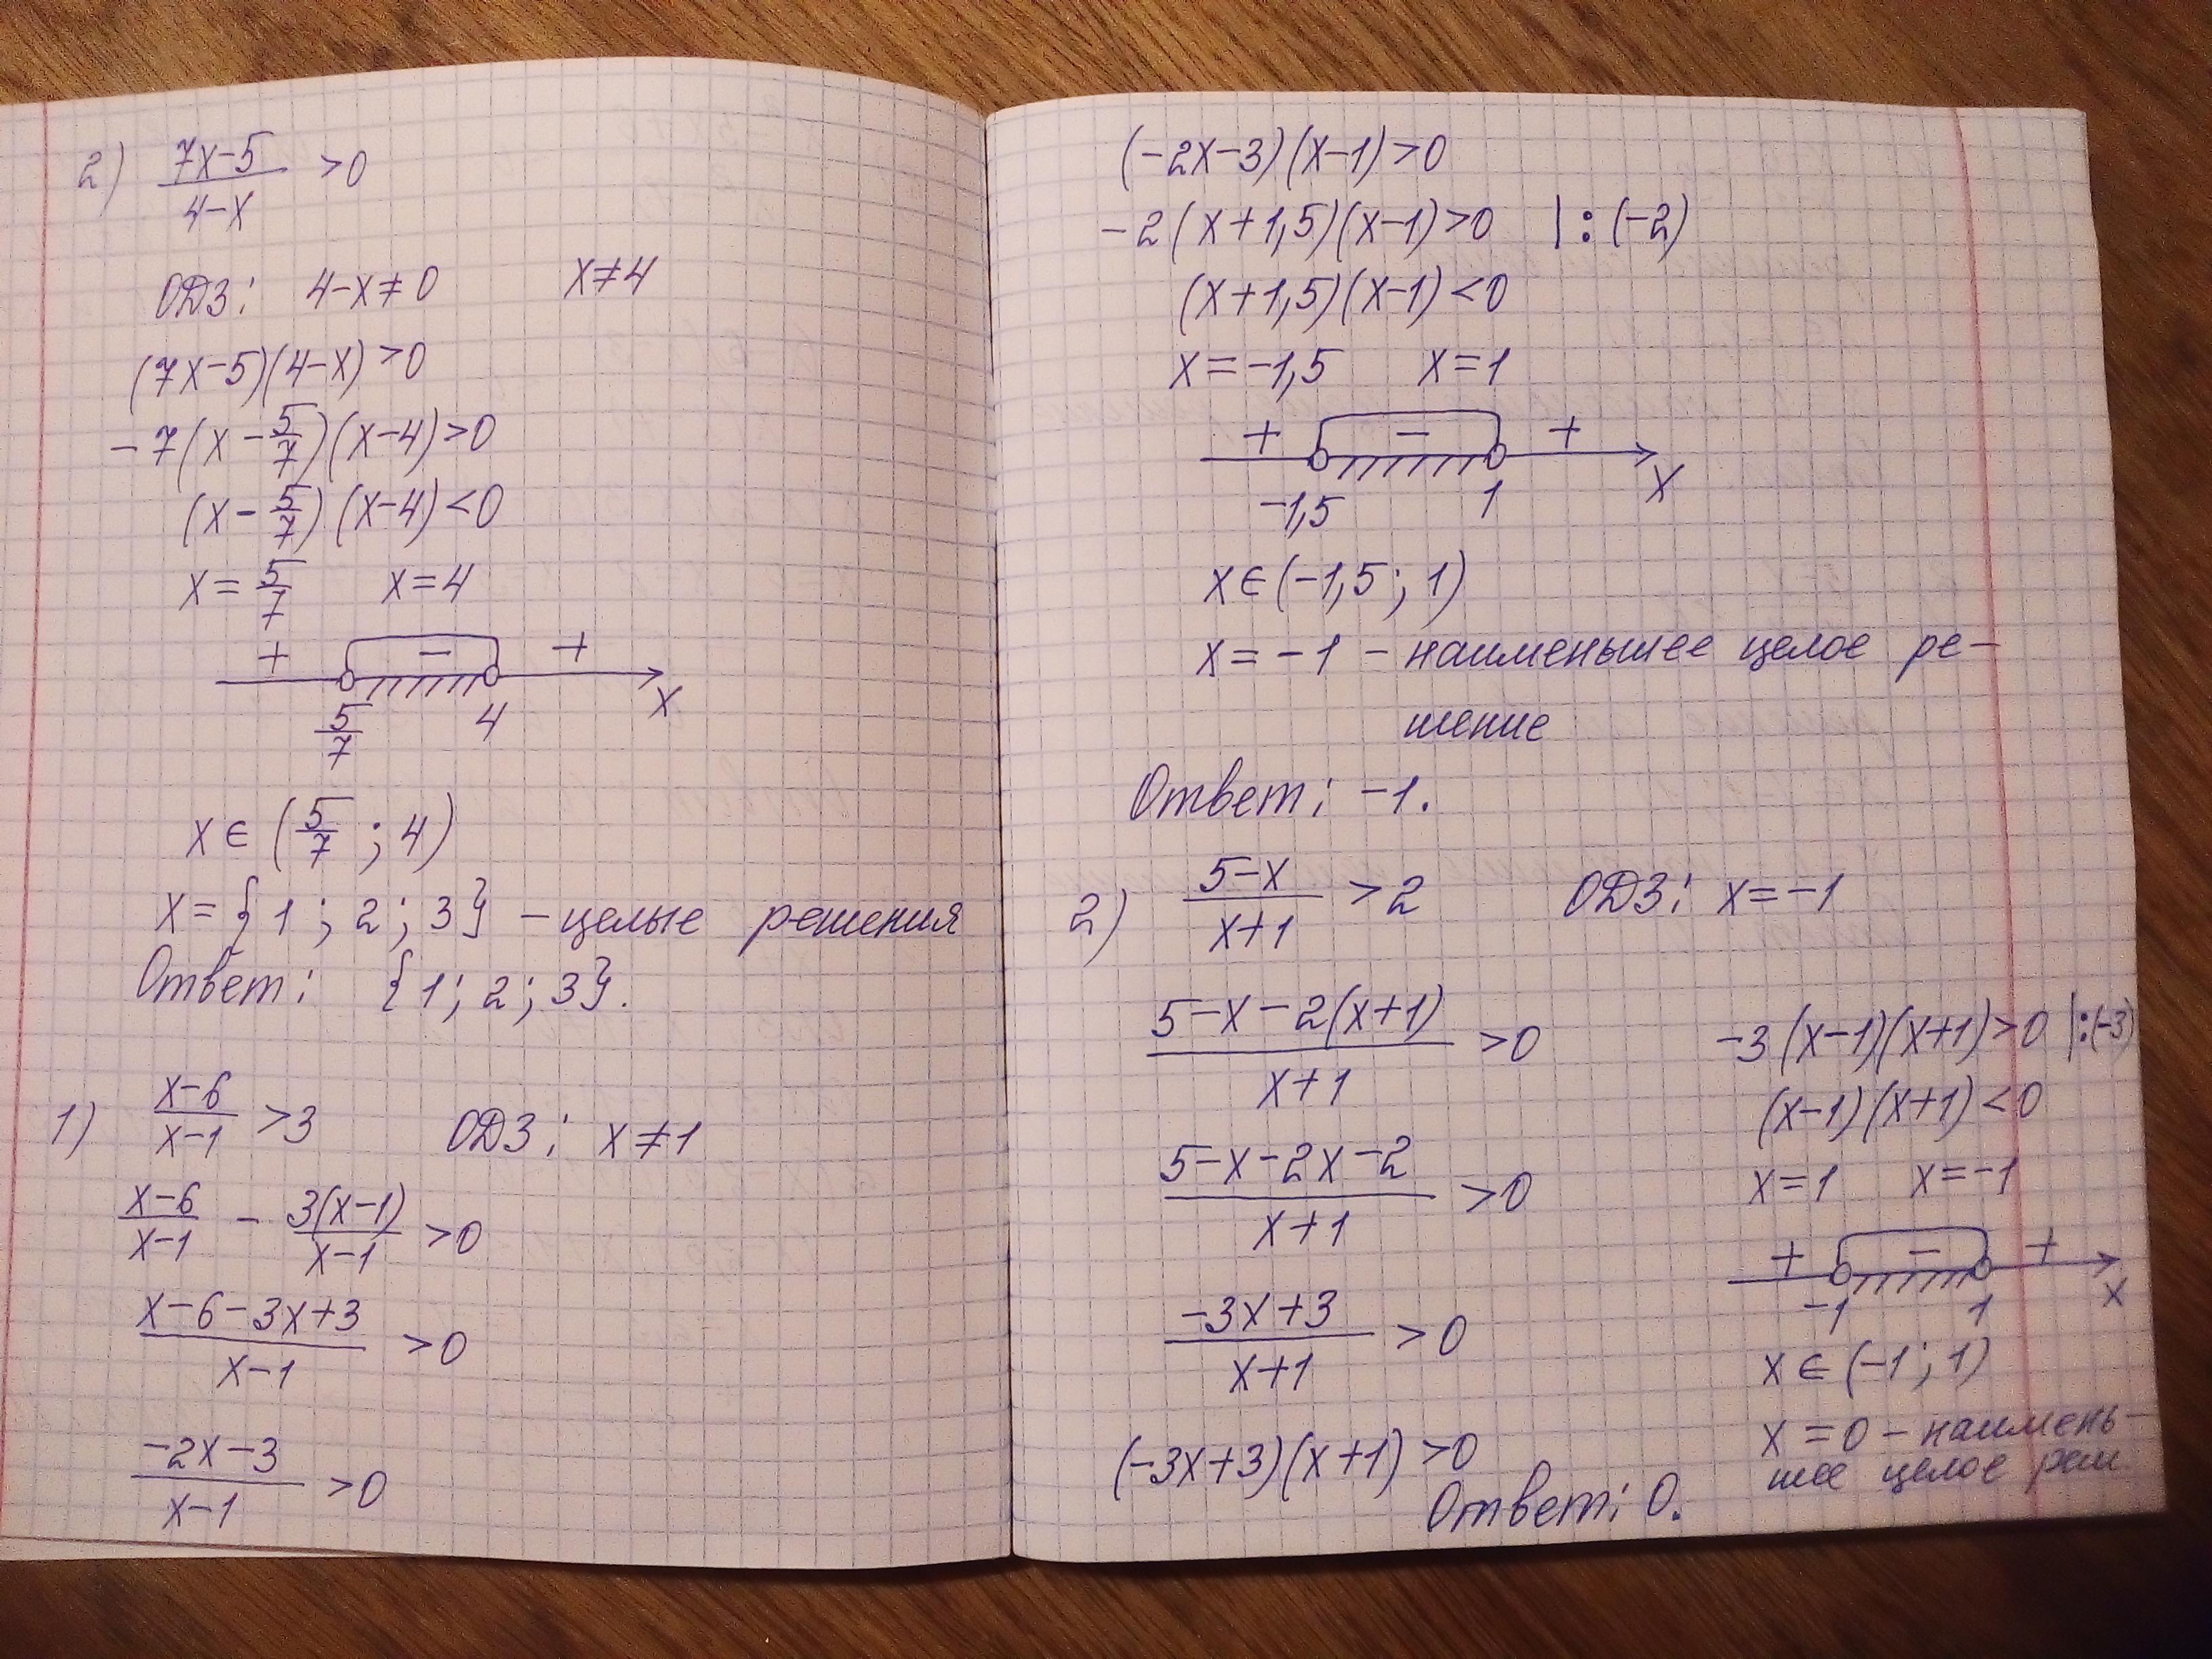 2) (7x-5)/(4-x) >0
ОДЗ: 4-x≠0 x≠4
(7x-5)(4-x)>0
-7(x-5/7)(x-4)>0
(x-5/7)(x-4)<0
x=5/7 x=4
+ - +
5/7 4 x
x∈(5/7; 4)
x={1; 2; 3} - целые решения
Ответ: {1; 2; 3}.
1) (x-6)/(x-1) >3 ОДЗ: x≠1
(x-6)/(x-1) - 3(x-1)/(x-1) >0
(x-6-3x+3)/(x-1) >0
(-2x-3)/(x-1) >0
(-2x-3)(x-1)>0
-2(x+1,5)(x-1)>0 |:(-2)
(x+1,5)(x-1)<0
x=-1,5 x=1
+ - +
-1,5 1 x
x∈(-1,5; 1)
x=-1 - наименьшее целое ре-
шение
Ответ: -1.
2) (5-x)/(x+1) >2 ОДЗ: x=-1
(5-x-2(x+1))/(x+1) >0
(5-x-2x-2)/(x+1) >0
(-3x+3)/(x+1) >0
(-3x+3)(x+1)>0
-3(x-1)(x+1)>0 |:(-3)
(x-1)(x+1)<0
x=1 x=-1
+ - +
-1 1 x
x∈(-1; 1)
x=0 - наимень-
шее целое реш
Ответ: 0.